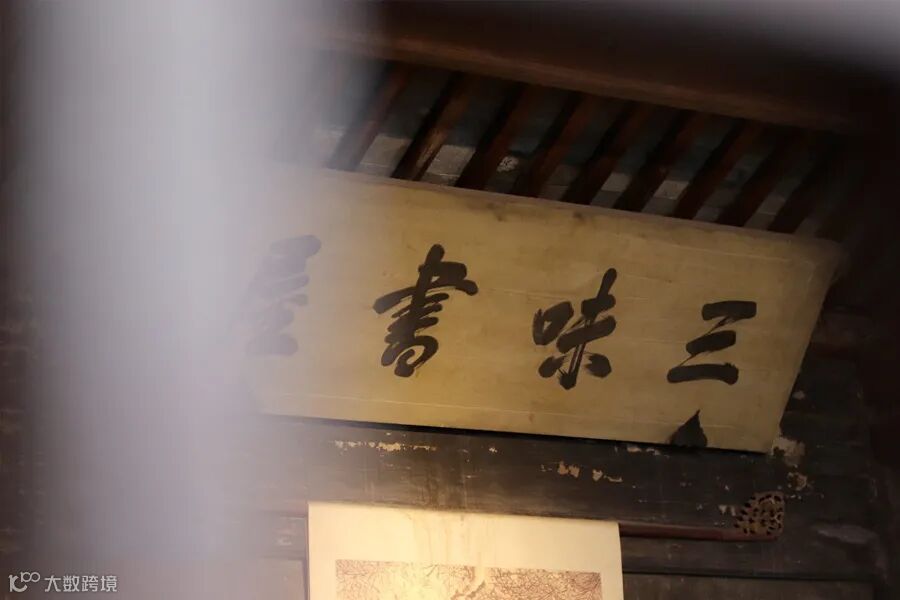 三味書屋
大数跨境